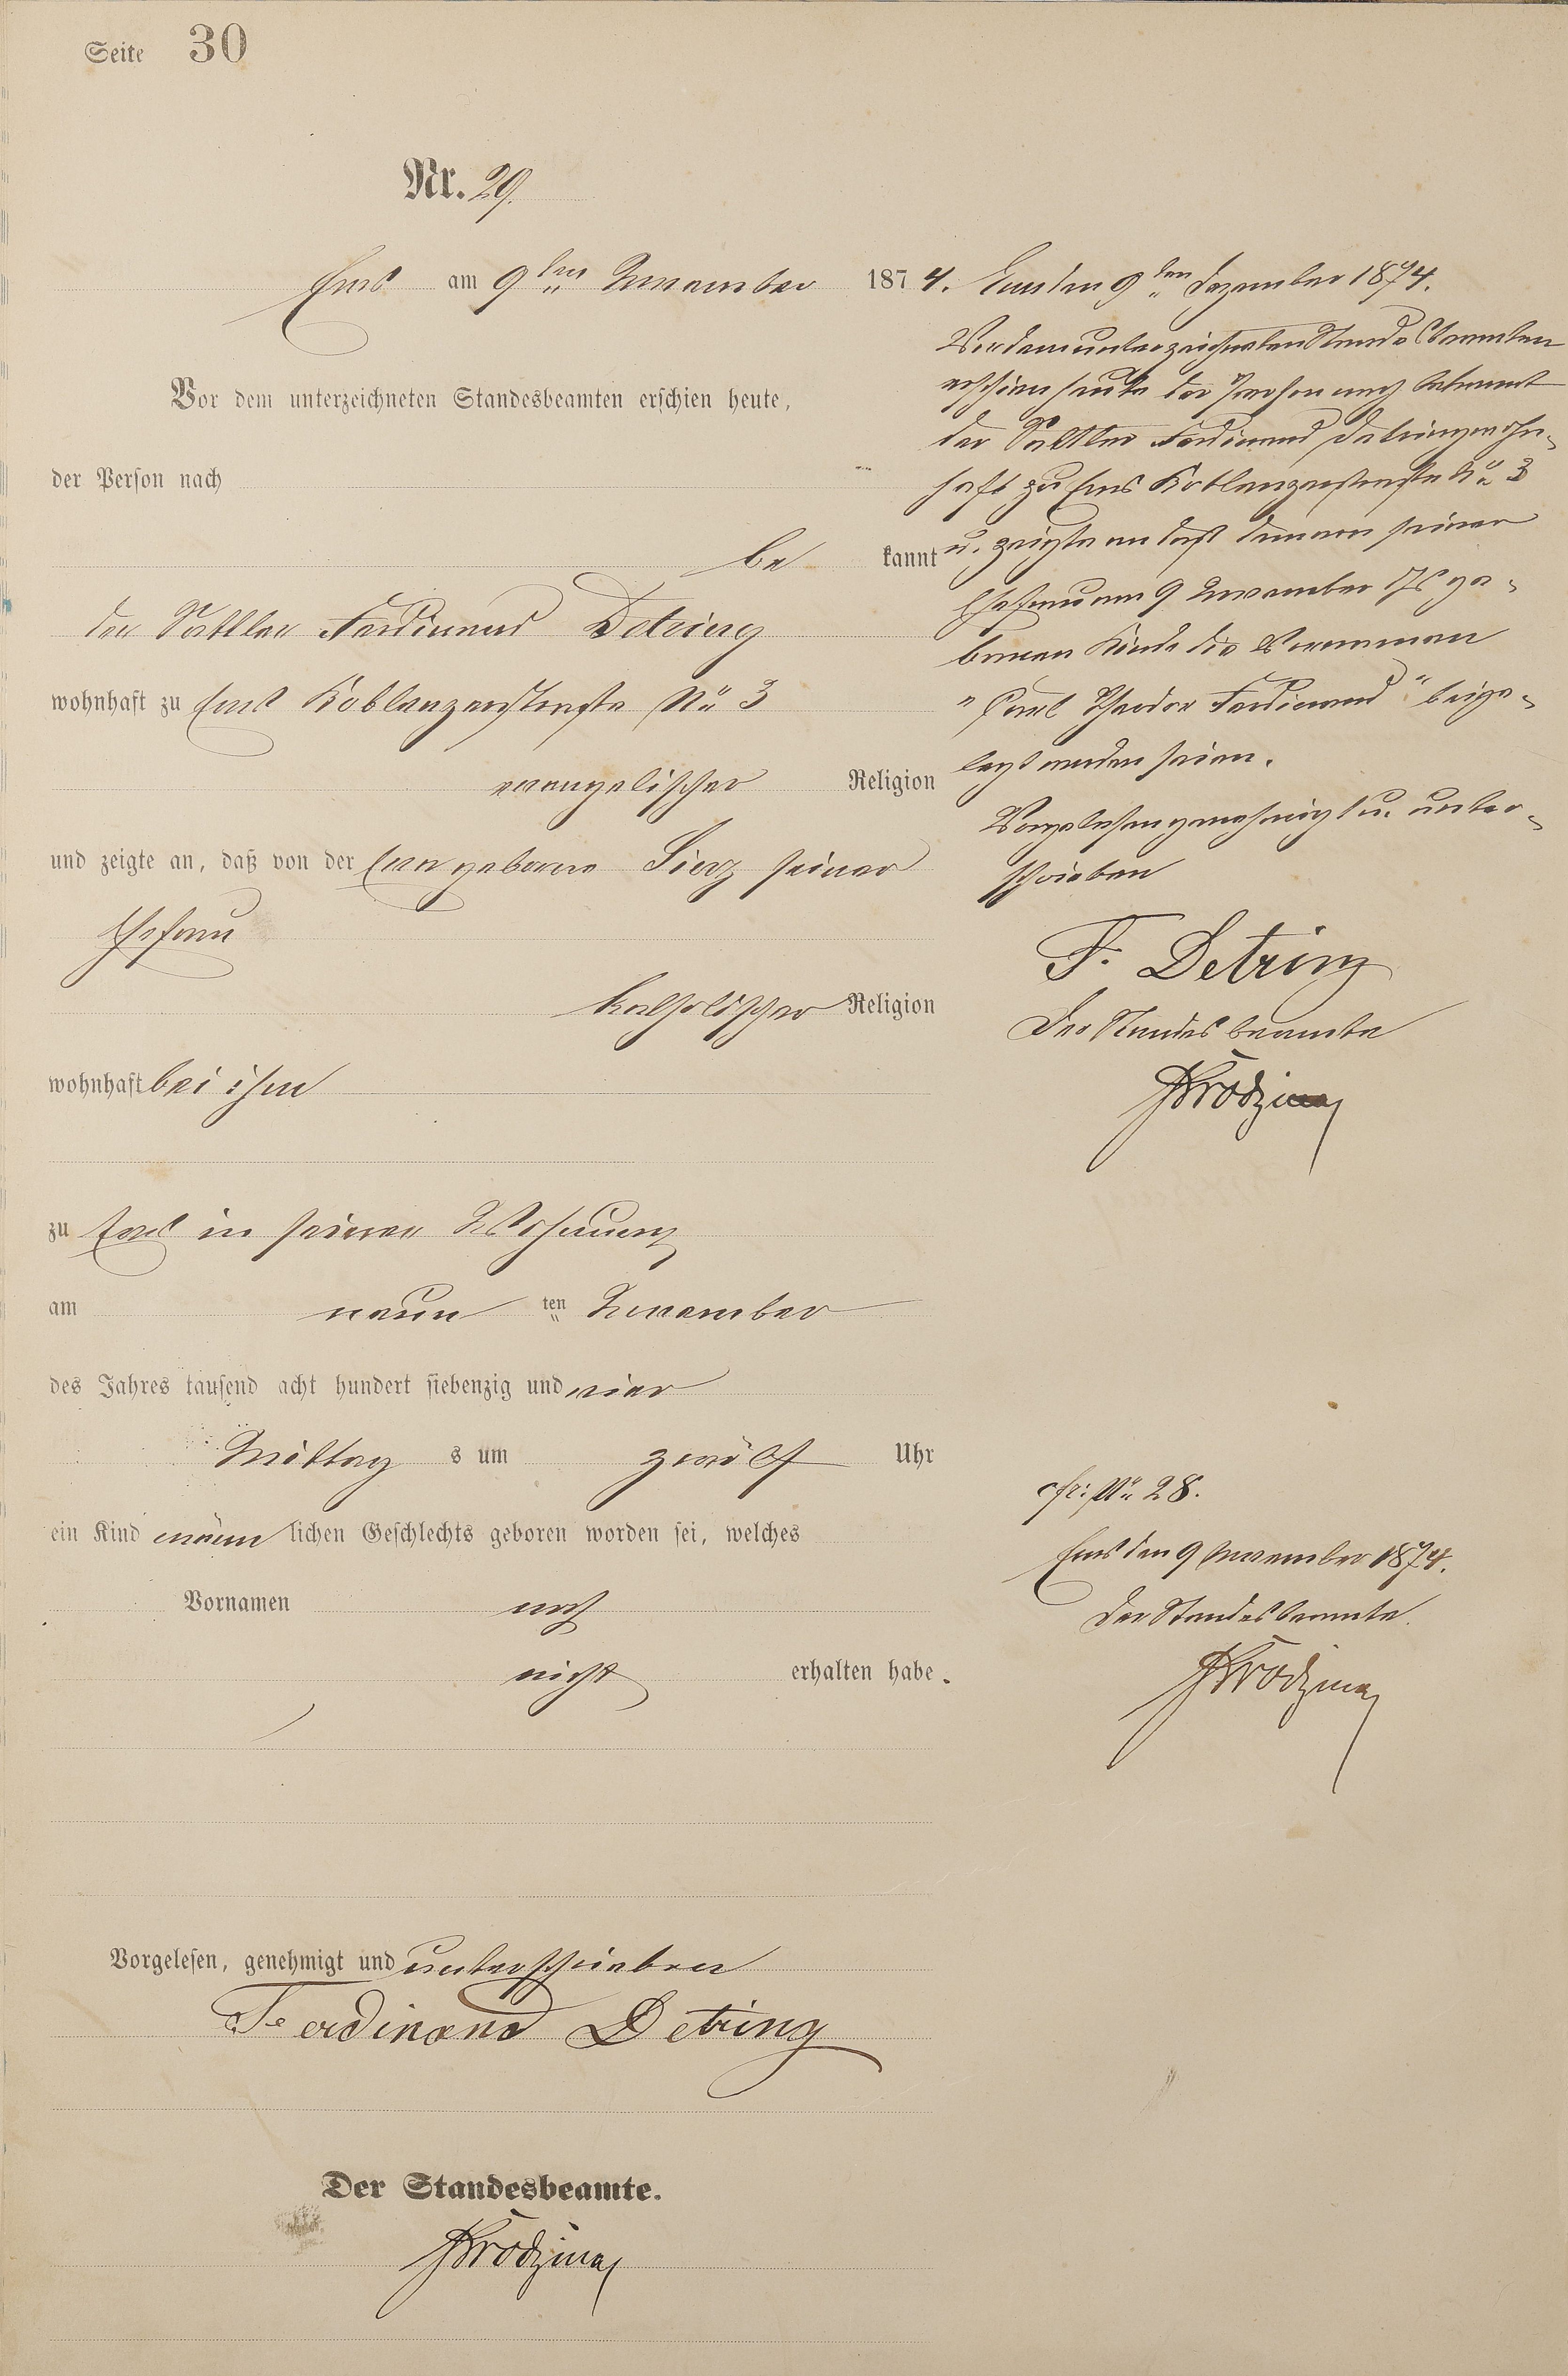 Seite 30
Nr. 29.
Ems am 9ten November 1874.
Vor dem unterzeichneten Standesbeamten erschien heute,
der Person nach
be kannt
der Sattler Ferdinand Detring
wohnhaft zu Ems Koblenzerstraße No 3
evangelischer Religion
und zeigte an, daß von der geborene seiner
Ehefrau
katholischer Religion
wohnhaft bei ihm
zu Ems in seiner Wohnung
am neun ten November
des Jahres tausend acht hundert siebenzig und vier
Mittag s um zwölf Uhr
ein Kind männ lichen Geschlechts geboren worden sei, welches
Vornamen noch
nicht erhalten habe.
Vorgelesen, genehmigt und unterschrieben
Ferdinand Detring
Der Standesbeamte.
Ems den 9ten Dezember 1874.
Vor dem unterzeichneten Standesbeamten
erschien heute der Person nach bekannt
der Sattler Ferdinand Detring wohn-
haft zu Ems Koblenzerstraße No 3
u. zeigte an daß dem von seiner
Ehefrau am 9 November ge-
borenen Kinde die Vornamen
"Carl Theodor Ferdinand" beige-
legt worden seien.
Vorgelesen genehmigt u. unter-
schrieben
F. Detring
Der Standesbeamte
cfr: No 28.
Ems den 9 November 1874.
Der Standesbeamte.